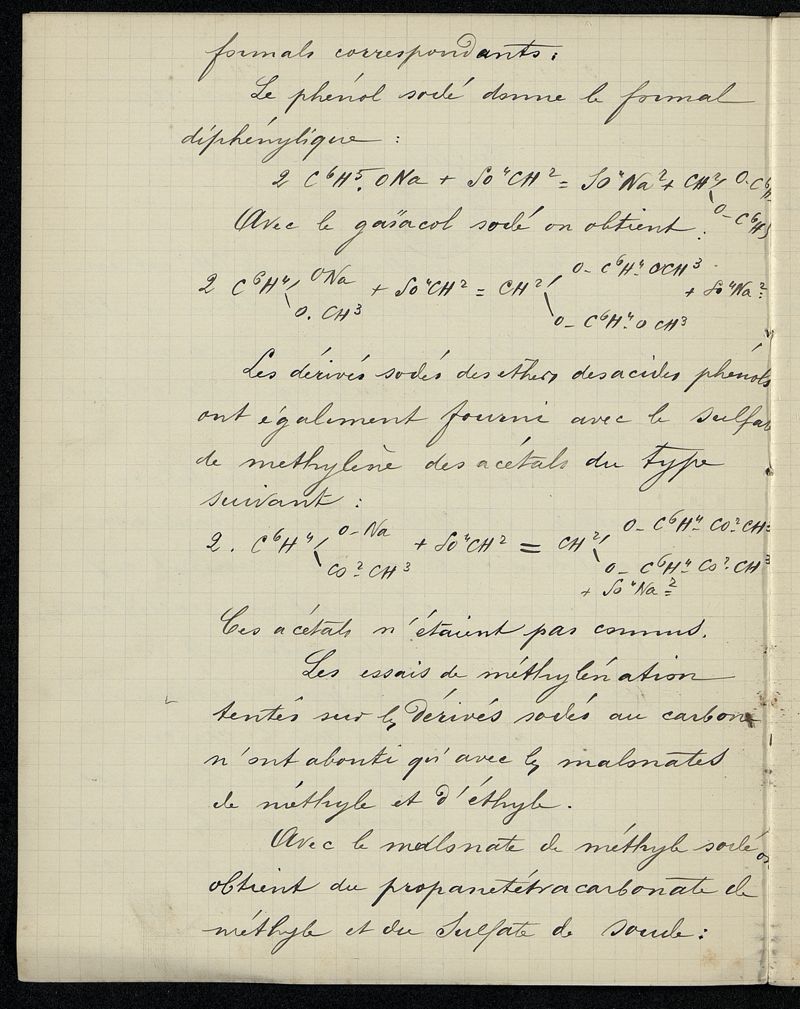 formals correspondants :
Le phénol sodé donne le formal
diphénylique :
2 C⁶H⁵. ONa + So⁴CH² = So⁴Na² + CH² / O-C⁶H
\ O-C⁶H5
Avec le gaïacol sodé on obtient :
2 C⁶H⁴ / ONa + So⁴CH² = CH² / O- C⁶H⁴- OCH³ + So⁴Na²
\ O. CH³ \ O- C⁶H⁴- O CH³
Les dérivés sodés des ethers des acides phénols
ont également fourni avec le sulfate
de methylène des acétals du type
suivant :
2. C⁶H⁴ / O-Na + So⁴CH² = CH² / O- C⁶H⁴- Co²- CH³
\ Co²- CH³ \ O- C⁶H⁴- Co²- CH³
+ So⁴Na²
Ces acétals n'étaient pas connus.
Les essais de méthylénation
tentés sur les dérivés sodés au carbone
n'ont abouti qu'avec les malonates
de méthyle et d'éthyle.
Avec le malonate de méthyle sodé on
obtient du propanetétracarbonate de
méthyle et du sulfate de soude :